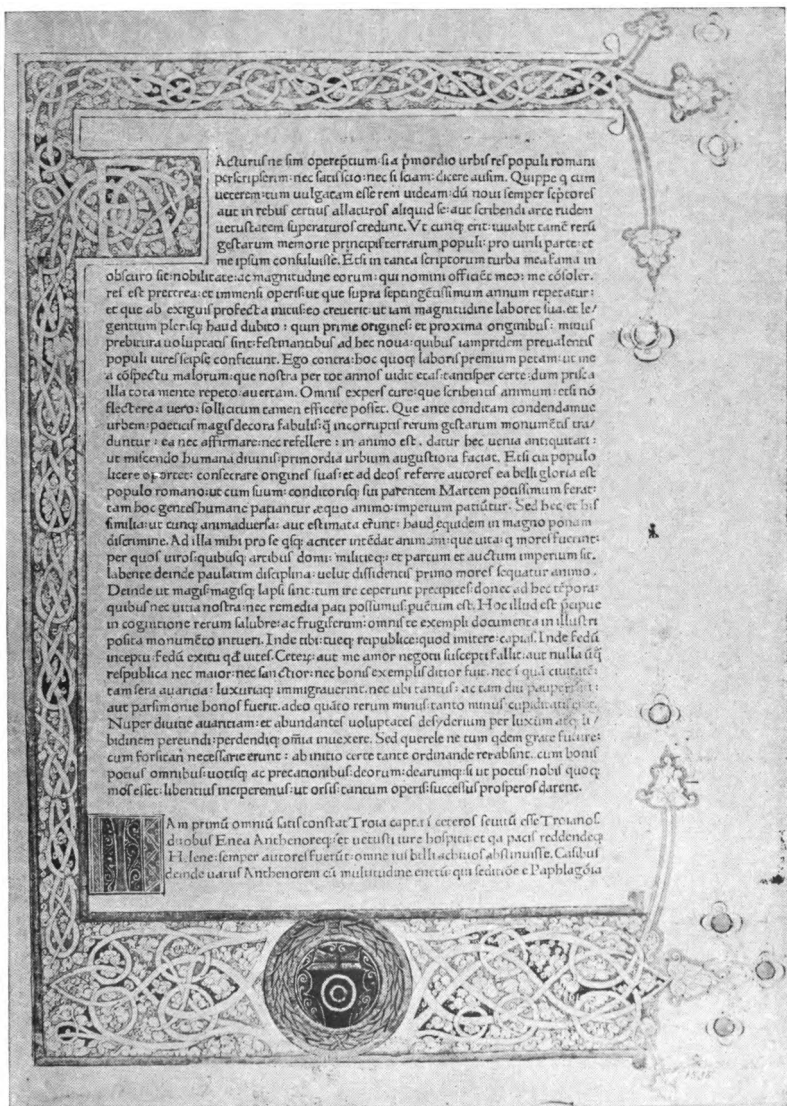 Acturusne sim operep̄tium: si a p̄mordio urbis res populi romani
perscripserim: nec satis scio: nec si sciam: dicere ausim. Quippe q cum
ueterem: tum uulgatam esse rem uideam: dū noui semper scp̄tores
aut in rebus certius allaturos aliquid se: aut scribendi arte rudem
uetustatem superaturos credunt. Vt cunq; erit: iuuabit tamē rerū
gestarum memorie principis terrarum populi: pro uirili parte: et
me ipsum consuluisse. Etsi in tanta scriptorum turba mea fama in
obscuro sit: nobilitate: ac magnitudine eorum: qui nomini officiēt meo: me cōsoler.
res est preterea: et immensi operis: ut que supra septingētissimum annum repetatur:
et que ab exiguis profecta initiis: eo creuerit: ut iam magnitudine laboret sua. et le/
gentium plerisq; haud dubito: quin prime origines: et proxima originibus: minus
prebitura uoluptatis sint: festinantibus ad hec noua: quibus iampridem preualentis
populi uires seipse conficiunt. Ego contra: hoc quoq; laboris premium petam: ut me
a cōspectu malorum: que nostra per tot annos uidit etas: tantisper certe: dum prisca
illa tota mente repeto: auertam. Omnis expers cure: que scribentis animum: etsi nō
flectere a uero: sollicitum tamen efficere posset. Que ante conditam condendamue
urbem: poeticis magis decora fabulis: q̄ incorruptis rerum gestarum monumētis tra/
duntur: ea nec affirmare: nec refellere: in animo est. datur hec uenia antiquitati:
ut miscendo humana diuinis: primordia urbium augustiora faciat. Et si cui populo
licere oportet: consecrare origines suas: et ad deos referre autores ea belli gloria est
populo romano: ut cum suum: conditorisq; sui parentem Martem potissimum ferat:
tam hoc gentes humane patiantur æquo animo: imperium patiūtur. Sed hec: et his
similia: ut cunq; animaduersa: aut estimata erunt: haud equidem in magno ponam
discrimine. Ad illa mihi pro se qsq; acriter intēdat animum: que uita: q mores fuerint:
per quos uiros: quibusq; artibus domi: militieq;: et partum et auctum imperium sit.
labente deinde paulatim disciplina: uelut dissidentis primo mores sequatur animo.
Deinde ut magis: magisq; lapsi sint: tum ire ceperint precipites: donec ad hec tēpora:
quibus nec uitia nostra: nec remedia pati possumus: puētum est. Hoc illud est p̄cipue
in cognitione rerum salubre: ac frugiferum: omnis te exempli documenta in illustri
posita monumēto intueri. Inde tibi: tueq; reipublice: quod imitere: capias. Inde fedū
inceptu: fedū exitu qd̄ uites. Ceteȝ: aut me amor negotii suscepti fallit: aut nulla ūq̄
respublica nec maior: nec sanctior: nec bonis exemplis ditior fuit. nec ī quā ciuitatē:
tam sera auaritia: luxuriaq; immigrauerint. nec ubi tantus: ac tam diu paupertati:
aut parsimonie honos fuerit. adeo quāto rerum minus: tanto minus cupiditatis erat.
Nuper diuitie auaritiam: et abundantes uoluptates desyderium per luxum atq; li/
bidinem pereundi: perdendiq; omīa inuexere. Sed querele ne tum qdem grate future:
cum forsitan necessarie erunt: ab initio certe tante ordinande rei absint. cum bonis
potius omnibus: uotisq; ac precationibus: deorum: dearumq;: si ut poetis nobis quoq;
mos esset: libentius inciperemus: ut orsis: tantum operis: successus prosperos darent.
Iam primū omniū satis constat Troia capta ī ceteros seuitū esse Troianos
duobus Enea Anthenoreq;: et uetusti iure hospitii: et qa pacis reddendeq;
Helene: semper autores fuerūt: omne ius belli achiuos abstinuisse. Casibus
deinde uariis Anthenorem cū multitudine enetū: qui seditiōe e Paphlagōia